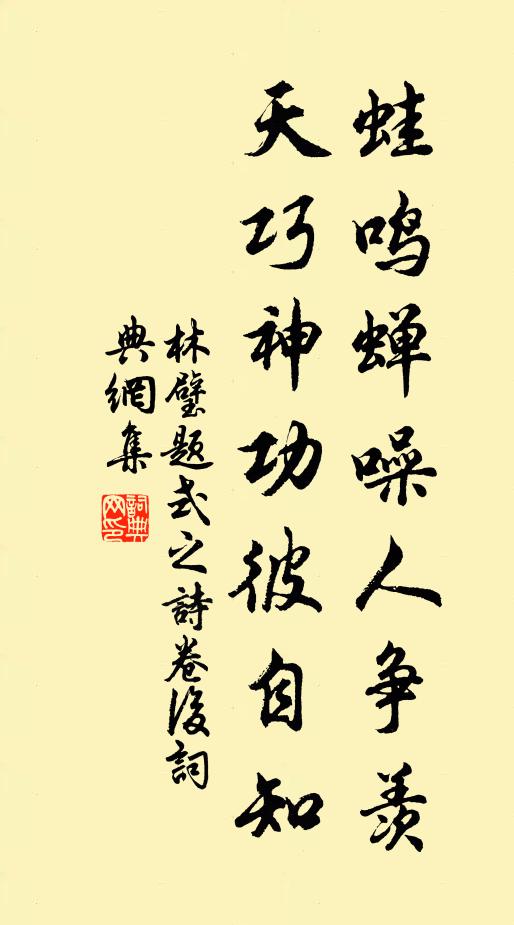 蛙鸣蝉噪人争羡
天巧神功彼自知
林璧题式之詩卷後詞
典網集
詞典网印